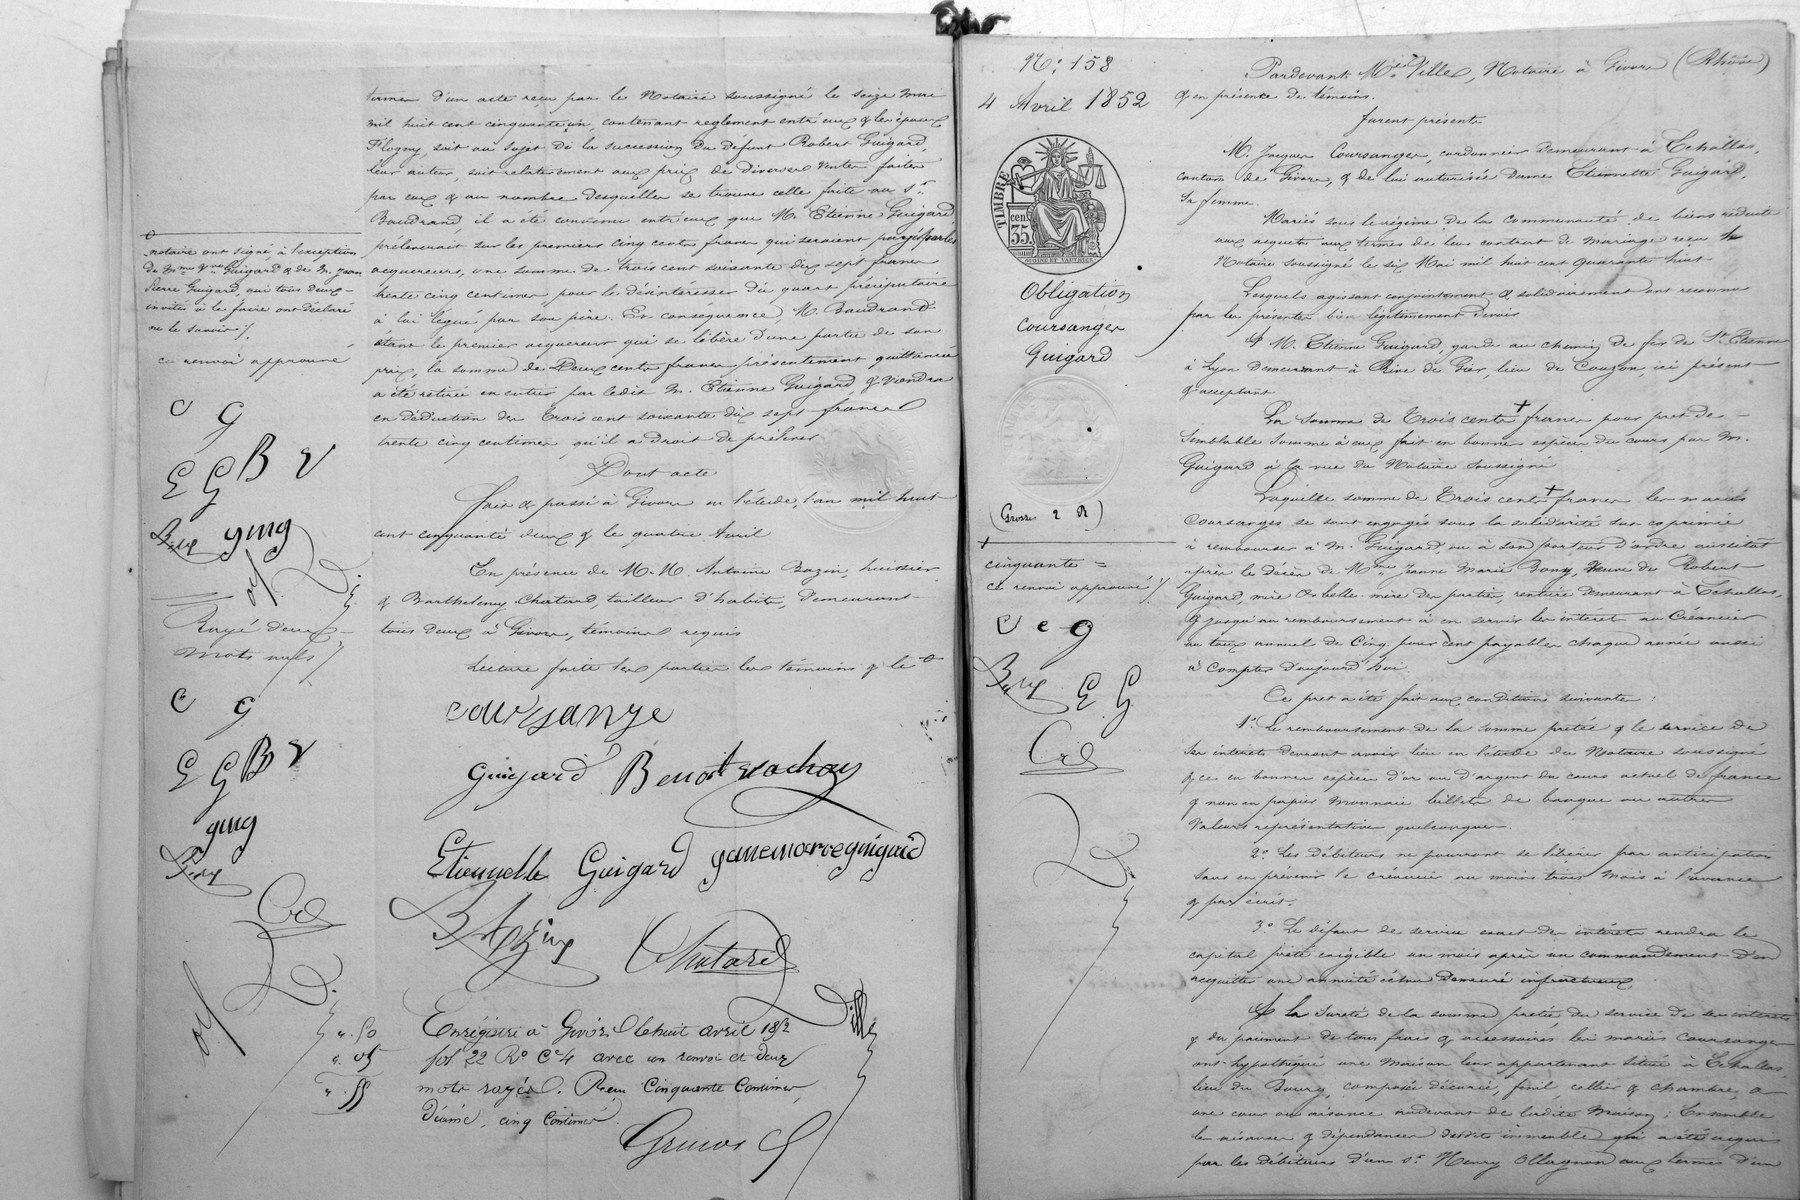 termes d'un acte reçu par le Notaire soussigné le seize mars
mil huit cent cinquante un, contenant reglement entre eux & les époux
Flogny, soit au sujet de la succession du défunt Robert Guigard,
leur auteur, soit relativement aux prix de diverses ventes faites
par eux & au nombre desquelles se trouve celle faite au sr.
Baudrand, il a été convenu entre eux que M. Etienne Guigard
prélèverait sur les premiers cinq cents francs qui seraient payés par les
acquereurs, une somme de trois cent soixante dix sept francs
trente cinq centimes, pour le désintéresser du quart préciputaire
à lui légué par son père. En conséquence, M. Baudrand
étant le premier acquereur qui se libère d'une partie de son
prix, la somme de Deux cents francs présentement quittancée
a été retirée en entier par ledit M. Etienne Guigard & viendra
en déduction des trois cent soixante dix sept francs
trente cinq centimes qu'il a droit de prélever
Dont acte
Fait & passé à Givors en l'étude, l'an mil huit
cent cinquante deux & le quatre Avril
En présence de M.M. Antoine Bazin, huissier,
& Barthelemy Chatard, tailleur d'habits, demeurant
tous deux à Givors, témoins requis
Lecture faite les parties les témoins & le
notaire ont signé à l'exception
de Mme Vve Guigard & de M. Jean
Pierre Guigard, qui tous deux
invités à le faire ont déclaré
ne le savoir /.
ce renvoi approuvé
C G
E G B V
gmg
Rayé deux
mots nuls /.
C G
E G B V
gmg
coursange
guigard Benoit vachon
Etiennette Guigard janemarieguigard
BAzin Chatard
Ville
". 50
". 05
". 55
Enregistré à Givors le huit avril 1852
fol. 22 Ro Ce 4 avec un renvoi et deux
mots rayés. Reçu Cinquante Centimes,
Décime, cinq Centimes
No. 158
4 Avril 1852
TIMBRE
35
cen.
Obligation
Coursanger
Guigard
(Grosse 2 R)
cinquante =
ce renvoi approuvé /.
C e g
E G
Pardevant Me Ville, Notaire à Givors (Rhône)
& en présence de témoins.
furent présents
M. Jacques Coursanger, cordonnier demeurant à Echallas,
canton de Givors, & de lui autorisée Dame Etiennette Guigard,
sa femme.
Mariés sous le régime de la communauté de biens réduite
aux acquets aux termes de leur contrat de mariage reçu le
Notaire soussigné le six Mai mil huit cent quarante huit
Lesquels agissant conjointement & solidairement ont reconnu
par les présentes bien légitimement devoir
A M. Etienne Guigard, garde au chemin de fer de St. Etienne
à Lyon demeurant à Rive de Gier, lieu de Couzon, ici présent
& acceptant
La Somme de Trois cents + francs pour pret de
Semblable Somme à eux fait en bonnes espèces du cours par M.
Guigard à la vue du Notaire soussigné
Laquelle somme de Trois cents + francs les mariés
Coursanger se sont engagés sous la solidarité sus exprimée
à rembourser à M. Guigard, ou à son porteur d'ordre aussitôt
après le décès de Mme Jeanne Marie Bony, Veuve de Robert
Guigard, mère & belle-mère des parties, rentière demeurant à Echallas,
& jusqu'au remboursement à en servir les intérêts au Créancier
au taux annuel de Cinq pour cent payables chaque année aussi
à compter d'aujourd'hui
Ce pret a été fait aux conditions suivantes :
1o. Le remboursement de la somme pretée & le service de
ses intérêts devront avoir lieu en l'étude du Notaire soussigné
& ce en bonnes espèces d'or ou d'argent du cours actuel de france
& non en papier Monnaie billets de banque ou autres
Valeurs représentatives quelconques.
2o. Les Débiteurs ne pourront se libérer par anticipation
sans en prévenir le créancier au moins trois Mois à l'avance
& par écrit.
3o. Le défaut de service exact des intérêts rendra le
capital prêté exigible un mois après un commandement d'en
acquitter une annuité échue demeuré infructueux.
A La Sureté de la somme pretée, du service de ses intérêts
& du paiement de tous frais & accessoires les mariés Coursanger
ont hypothéqué une Maison leur appartenant située à Echallas,
lieu du Bourg, composée d'écurie, fenil, cellier & chambre, a
une cour ou aisance audevant de ladite Maison; Ensemble
les aisances & dépendances desdits immeubles qui a été acquis
par les débiteurs d'un sr. Henry Ollagnon aux termes d'un